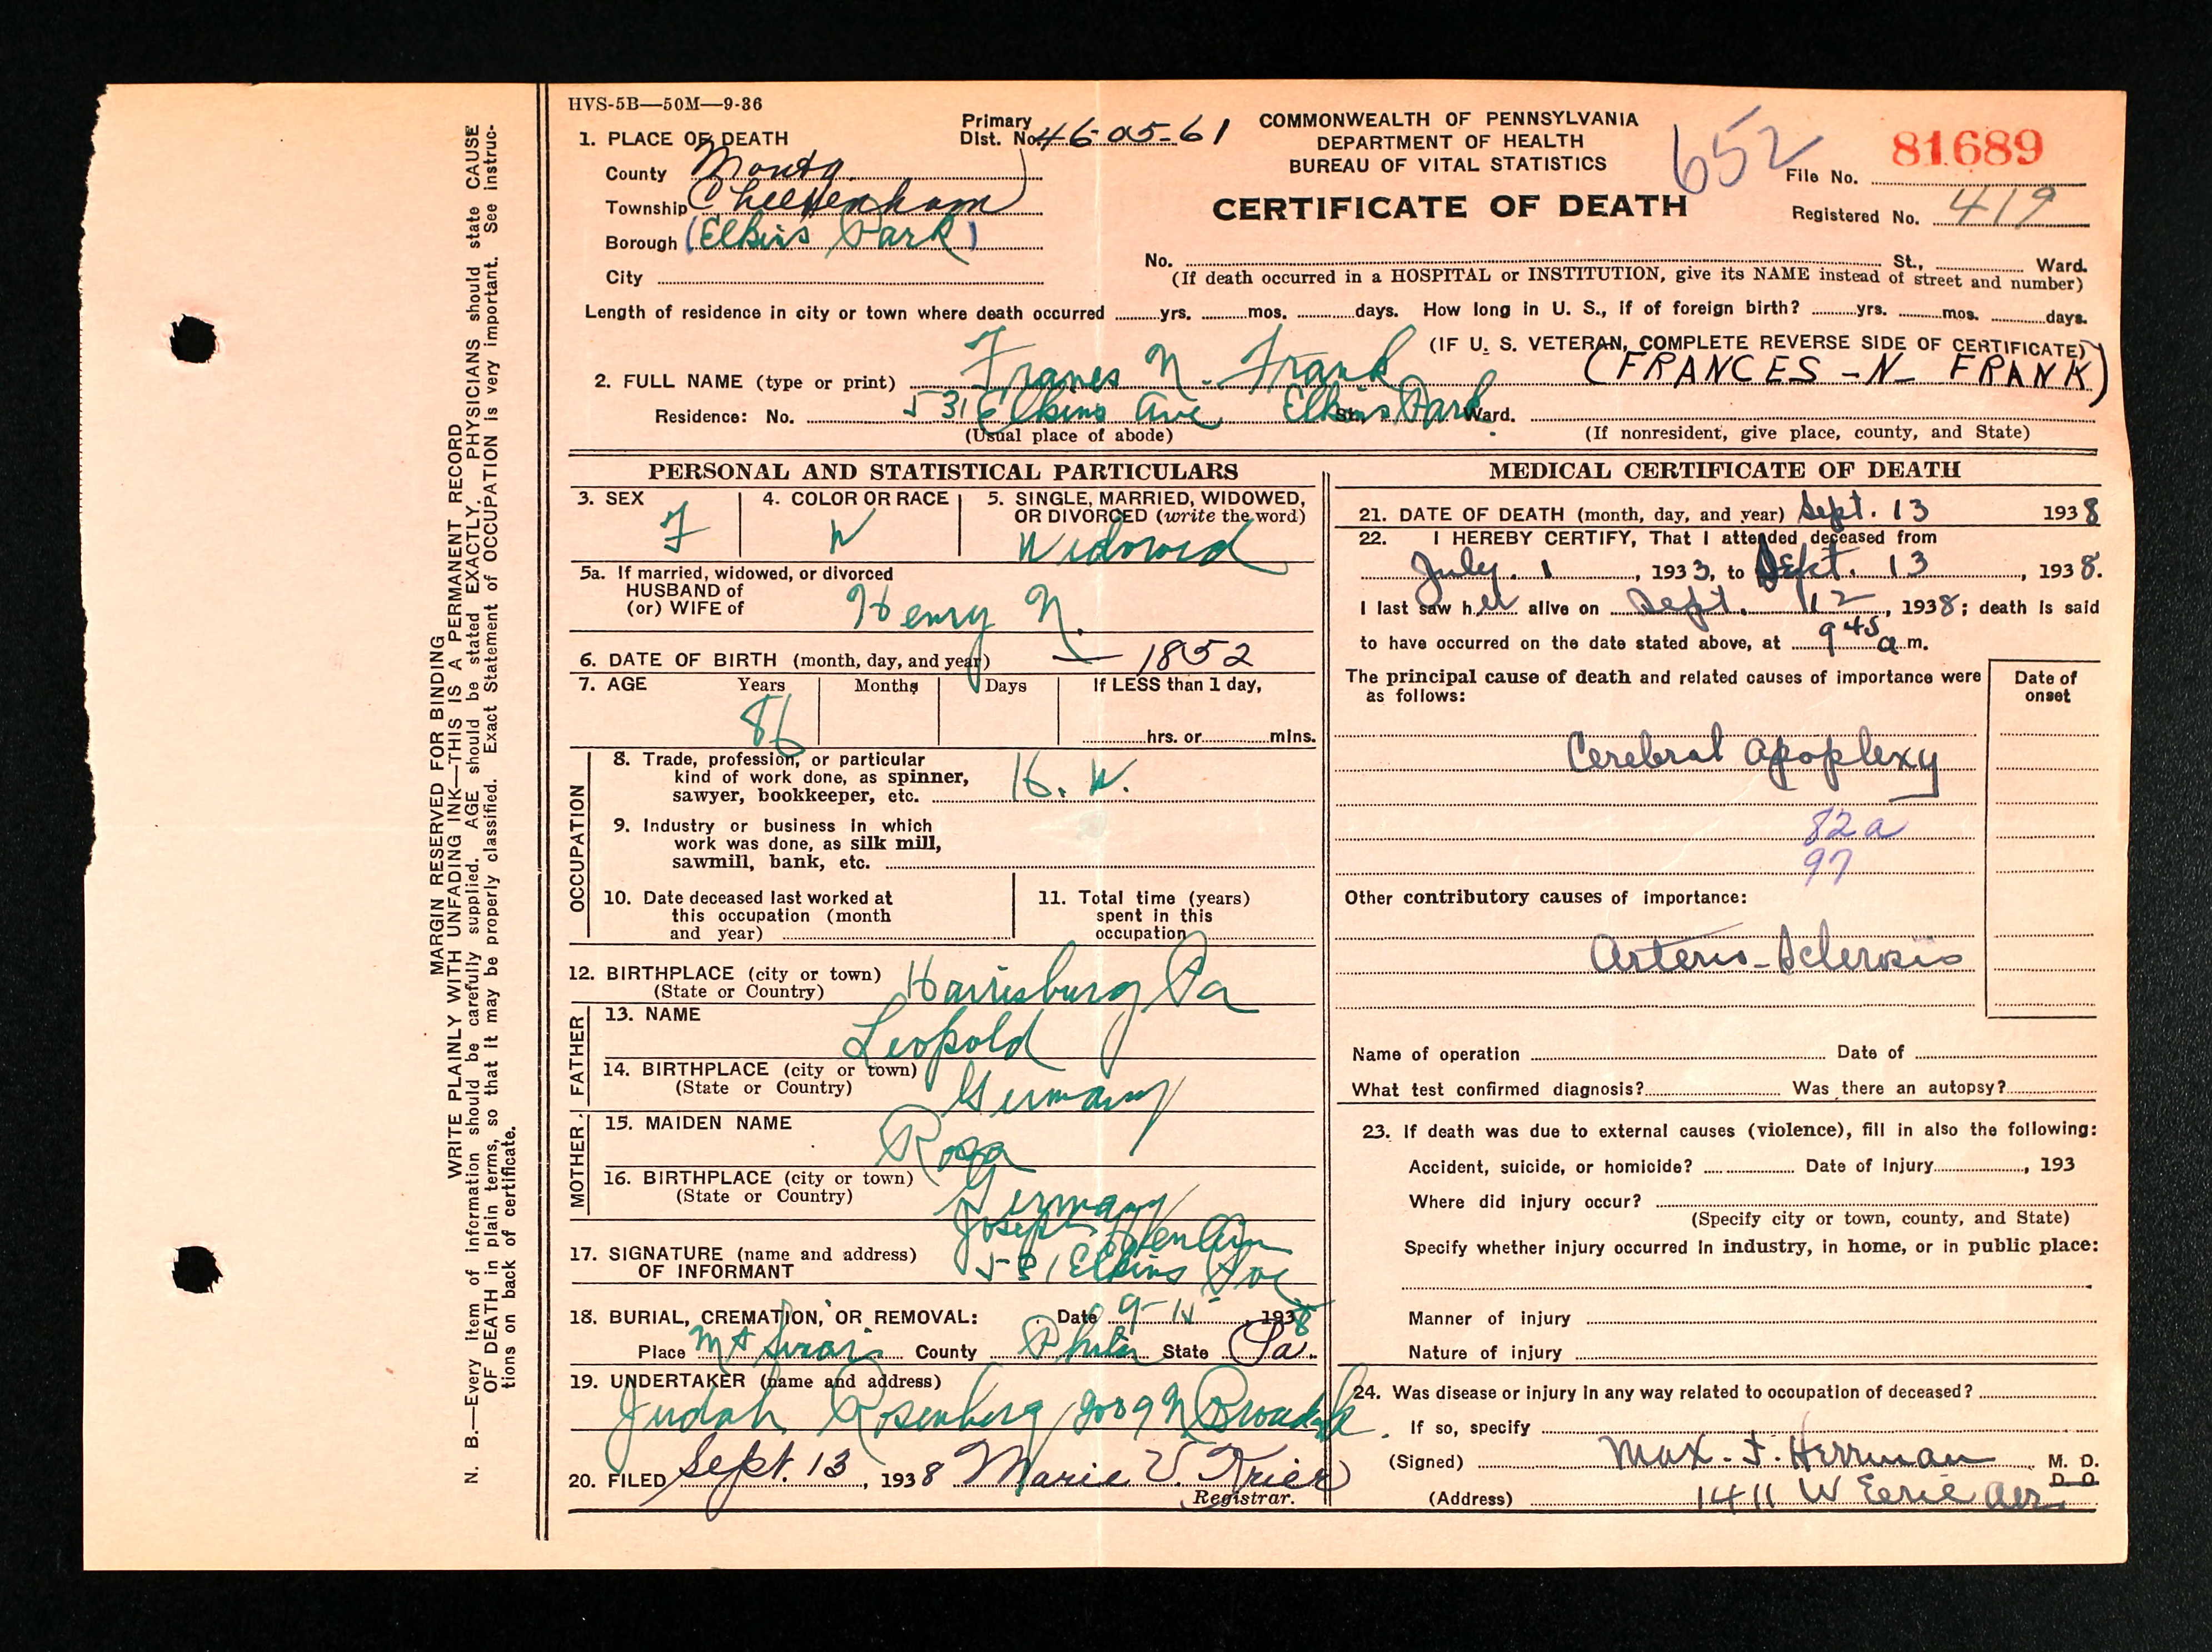 HVS-5B—50M—9-36
1. PLACE OF DEATH
County Montg.
Township Cheltenham
Borough (Elkins Park)
City
Primary
Dist. No. 46-05-61
COMMONWEALTH OF PENNSYLVANIA
DEPARTMENT OF HEALTH
BUREAU OF VITAL STATISTICS
CERTIFICATE OF DEATH
652
81689
File No.
Registered No. 419
No. St., Ward.
(If death occurred in a HOSPITAL or INSTITUTION, give its NAME instead of street and number)
Length of residence in city or town where death occurred yrs. mos. days. How long in U. S., if of foreign birth? yrs. mos. days.
(IF U. S. VETERAN, COMPLETE REVERSE SIDE OF CERTIFICATE)
2. FULL NAME (type or print) Frances N. Frank (FRANCES -N- FRANK)
Residence: No. 531 Elkins Ave Elkins Park St. Ward.
(Usual place of abode) (If nonresident, give place, county, and State)
PERSONAL AND STATISTICAL PARTICULARS
3. SEX
F
4. COLOR OR RACE
W
5. SINGLE, MARRIED, WIDOWED,
OR DIVORCED (write the word)
Widowed
5a. If married, widowed, or divorced
HUSBAND of
(or) WIFE of Henry N.
6. DATE OF BIRTH (month, day, and year) — 1852
7. AGE Years Months Days If LESS than 1 day,
86
hrs. or mins.
OCCUPATION
8. Trade, profession, or particular
kind of work done, as spinner,
sawyer, bookkeeper, etc. H. W.
9. Industry or business in which
work was done, as silk mill,
sawmill, bank, etc.
10. Date deceased last worked at
this occupation (month
and year)
11. Total time (years)
spent in this
occupation
12. BIRTHPLACE (city or town) Harrisburg Pa
(State or Country)
FATHER
13. NAME
Leopold
14. BIRTHPLACE (city or town)
(State or Country) Germany
MOTHER
15. MAIDEN NAME
Rosa
16. BIRTHPLACE (city or town)
(State or Country) Germany
Joseph
17. SIGNATURE (name and address)
OF INFORMANT 531 Elkins Ave
18. BURIAL, CREMATION, OR REMOVAL: Date 9-15 1938
Place Mt Sinai County Phila State Pa.
19. UNDERTAKER (name and address)
Judah Rosenberg 2009 N Broad St.
20. FILED Sept. 13, 1938 Marie V. Krier
Registrar.
MEDICAL CERTIFICATE OF DEATH
21. DATE OF DEATH (month, day, and year) Sept. 13 1938
22. I HEREBY CERTIFY, That I attended deceased from
July. 1, 1933, to Sept. 13, 1938.
I last saw her alive on Sept. 12, 1938; death is said
to have occurred on the date stated above, at 945 a.m.
The principal cause of death and related causes of importance were
as follows:
Date of
onset
Cerebral Apoplexy
82a
97
Other contributory causes of importance:
Arterio-Sclerosis
Name of operation Date of
What test confirmed diagnosis? Was there an autopsy?
23. If death was due to external causes (violence), fill in also the following:
Accident, suicide, or homicide? Date of injury, 193
Where did injury occur?
(Specify city or town, county, and State)
Specify whether injury occurred in industry, in home, or in public place:
Manner of injury
Nature of injury
24. Was disease or injury in any way related to occupation of deceased?
If so, specify
(Signed) Max. J. Herrman M. D.
D. O.
(Address) 1411 W Eerie Ave.
MARGIN RESERVED FOR BINDING
WRITE PLAINLY WITH UNFADING INK—THIS IS A PERMANENT RECORD
N. B.—Every item of information should be carefully supplied. AGE should be stated EXACTLY. PHYSICIANS should state CAUSE
OF DEATH in plain terms, so that it may be properly classified. Exact Statement of OCCUPATION is very important. See instruc-
tions on back of certificate.